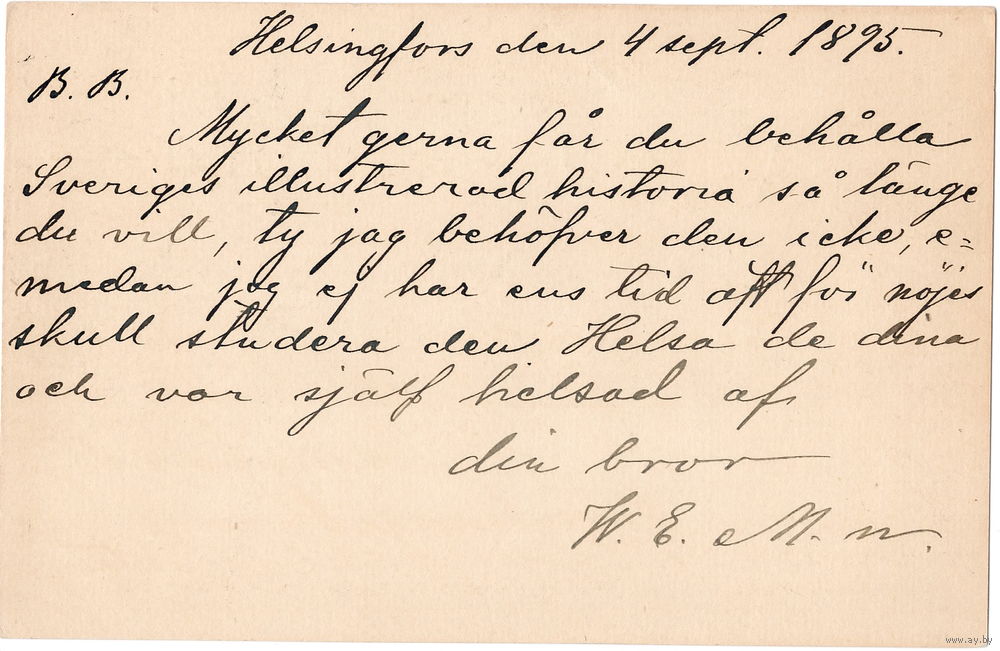 Helsingfors den 4 sept. 1895.
B. B.
Mycket gerna får du behålla
Sveriges illustrerad historia så länge
du vill, ty jag behöfver den icke, e=
medan jag ej har ens tid att för nöjes
skull studera den Helsa de dina
och var själf helsad af
din bror
W. E. M. n.
www.ay.by